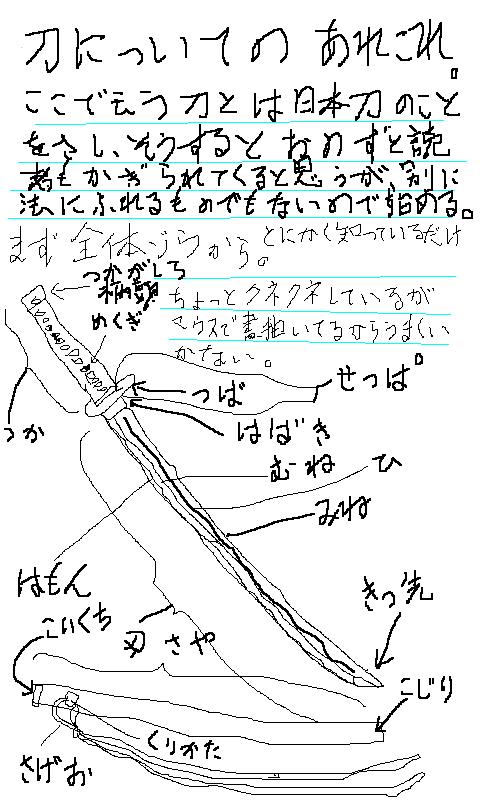 刀についての あれこれ。
ここで云う刀とは日本刀のこと
をさし、そうすると おのずと読
者もかぎられてくると思うが、別に
法にふれるものでもないので始める。
まず 全体づらから。とにかく知っているだけ
つかがしら
柄頭
めくぎ
ちょっとクネクネしているが
マウスで書描いてるからうまくい
かない。
つば
せっぱ
はばき
つか
むね
ひ
みね
はもん
きっ先
こいくち
刃
さや
こじり
くりかた
さげお